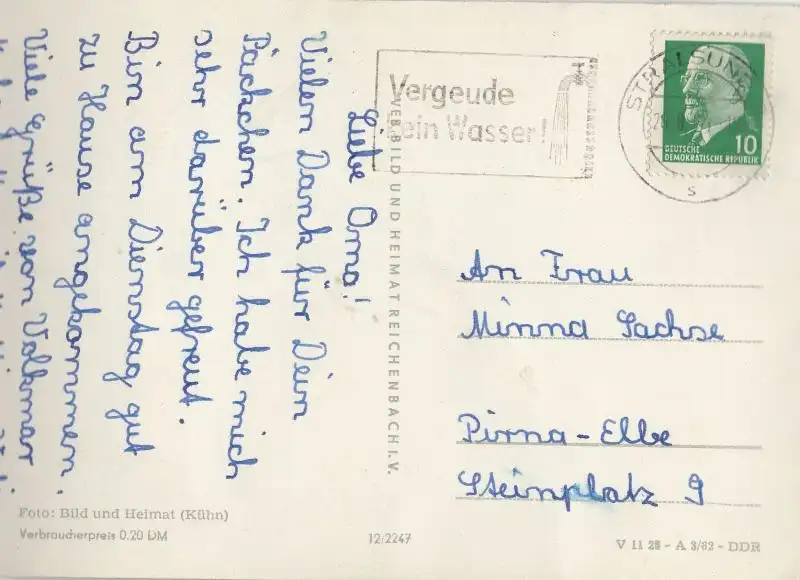 Liebe Oma!
Vielen Dank für Dein
Päckchen. Ich habe mich
sehr darüber gefreut.
Bin am Dienstag gut
zu Hause angekommen.
Viele Grüße von Volkmar
Vergeude
kein Wasser!
STRALSUND
s
DEUTSCHE
DEMOKRATISCHE REPUBLIK
10
VEB BILD UND HEIMAT REICHENBACH I. V.
An Frau
Minna Sachse
Pirna-Elbe
Steinplatz 9
Foto: Bild und Heimat (Kühn)
Verbraucherpreis 0.20 DM
12/2247
V 11 28 - A 3/62 - DDR